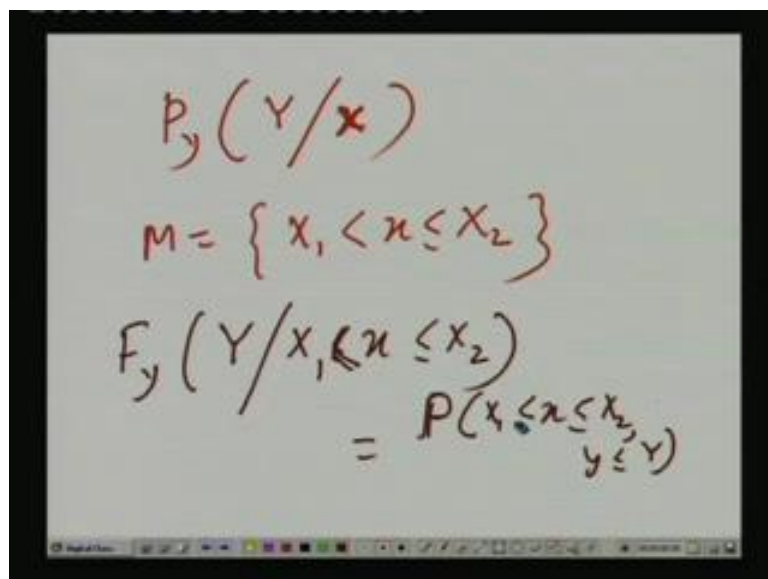 P_y (Y/x)
M = { X₁ < x ≤ X₂ }
F_y (Y/X₁ < x ≤ X₂)
= P(X₁ ≤ x ≤ X₂,
y ≤ Y)